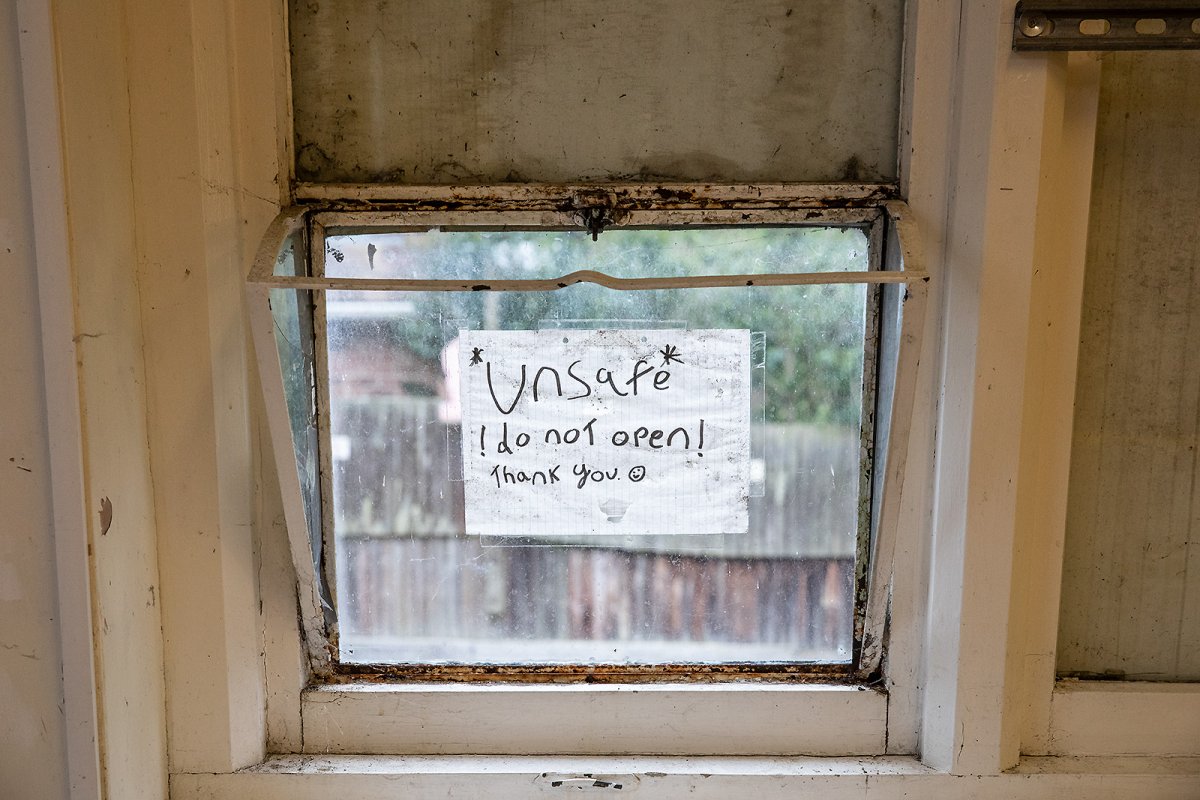 *Unsafe*
! do not open!
Thank you. ☺